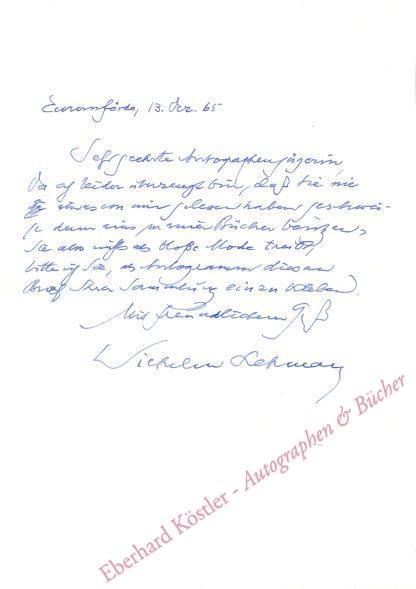 Eckernförde, 13. Dez. 65
Sehr geehrte Autographenjägerin,
Da ich leider überzeugt bin, daß Sie nie
etwas von mir gelesen haben geschwei-
ge denn eins meiner Bücher besitzen,
Sie also nichts als bloße Mode treibt,
bitte ich Sie, als Autogramm diesen
Brief Ihrer Sammlung einzukleben.
Mit freundlichem Gruß
Wilhelm Lehmann
Eberhard Köstler - Autographen & Bücher